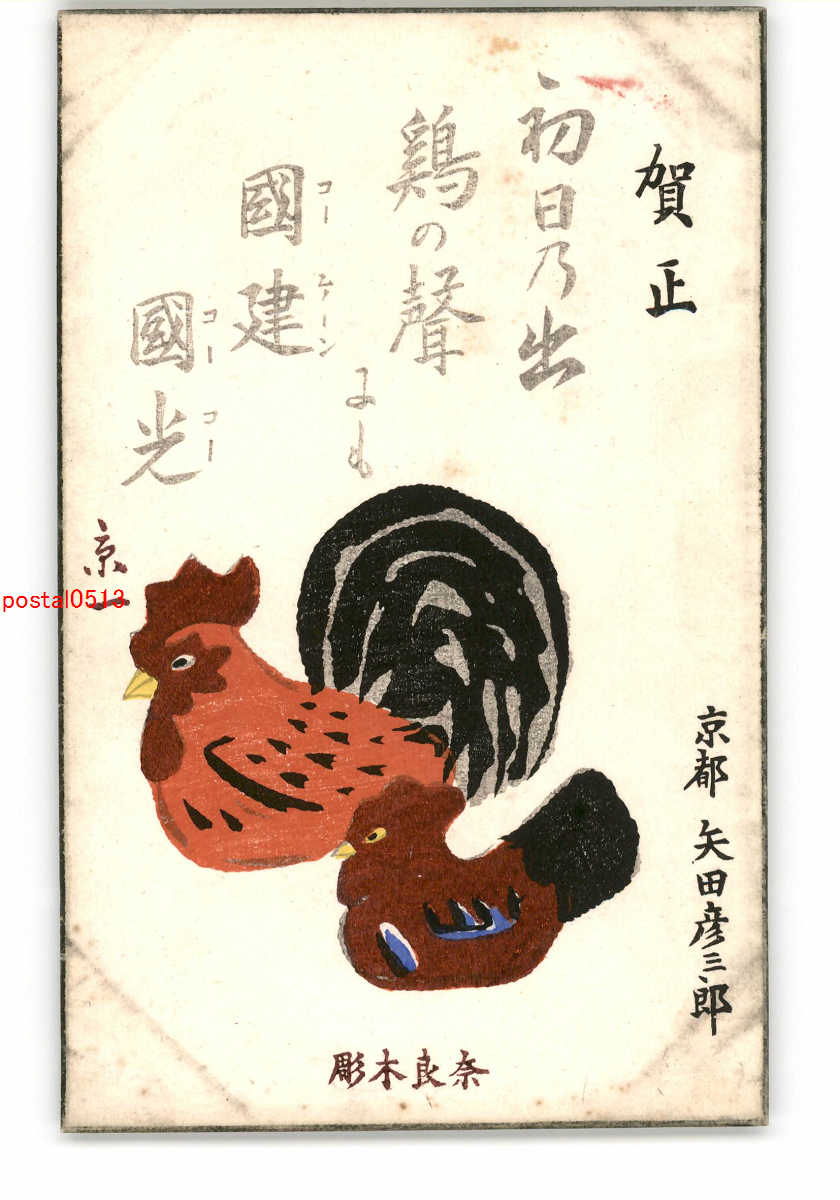 賀正
初日乃出
鶏の聲
にも
國建
コー ケーン
國光
コー コー
京一
京都 矢田彦三郎
彫木良奈
postal0513